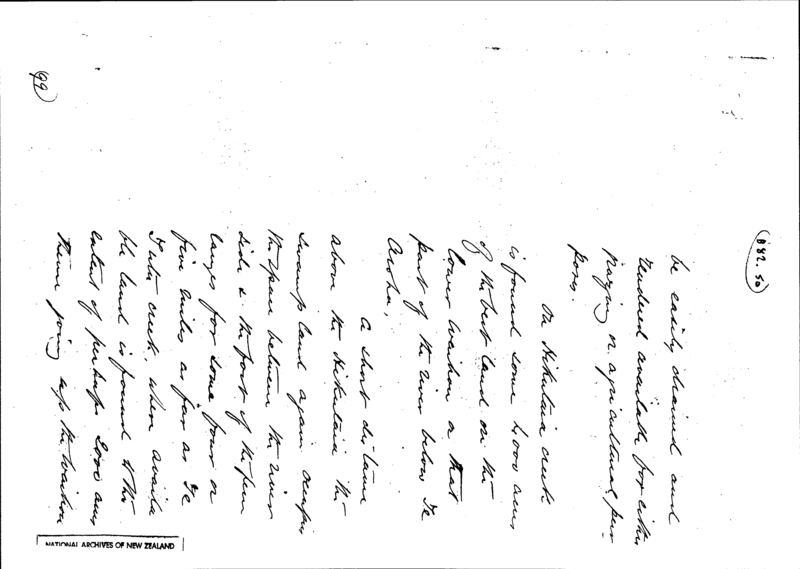 B 82. 50
be easily drained and
rendered available for either
grazing or agricultural pur-
poses.
On Hikutaia creek
is found some 4,000 acres
of the best land on the
lower Waihou or that
part of the river below Te
Aroha,
A short distance
above the Hikutaia the
swamp land again occupies
the space between the river
side & the foot of the
range for some four or
five miles as far as Te
creek, where availa
ble land is found to the
extent of perhaps 2000 acres
thence going up the Waihou
99
NATIONAL ARCHIVES OF NEW ZEALAND